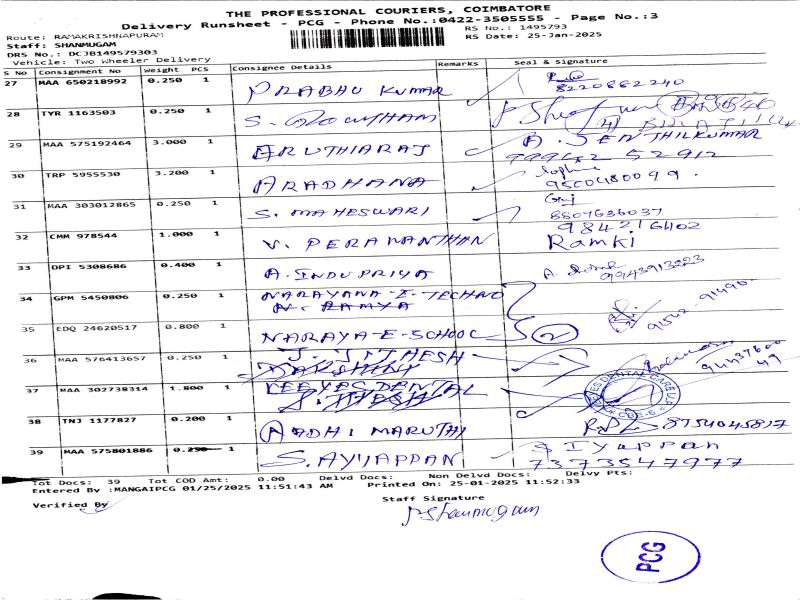 THE PROFESSIONAL COURIERS, COIMBATORE
Delivery Runsheet - PCG - Phone No.:0422-3505555 - Page No.:3
Route: RAMAKRISHNAPURAM RS No.: 1495793
Staff: SHANMUGAM RS Date: 25-Jan-2025
DRS No.: DCJB149579303
Vehicle: Two Wheeler Delivery
S No Consignment No Weight PCS Consignee Details Remarks Seal & Signature
27 MAA 650218992 0.250 1 PRABHU KUMAR 8220882240
28 TYR 1163503 0.250 1 S. GOWTHAM
29 MAA 575192464 3.000 1 ARUTHIARAJ A. SENTHILKUMAR
99942 52912
30 TRP 5955530 3.200 1 ARADHANA
31 MAA 303012865 0.250 1 S. MAHESWARI 8807636037
32 CMM 978544 1.000 1 V. PERAMANTHAN 9842716402
Ramki
33 DPI 5308686 0.400 1 A. INDUPRIYA 9943913223
34 GPM 5450806 0.250 1 NARAYANA-E-TECHNO
N. RAMYA
35 EDQ 24620517 0.800 1 NARAYA-E-SCHOOL 2
36 MAA 576413657 0.250 1 J. JITHESH
37 MAA 302738314 1.800 1 DENTAL
38 TNJ 1177827 0.200 1 AADHI MARUTHI 8754045817
39 MAA 575801886 0.250 1 S. AYYAPPAN S Iyappan
7373547977
Tot Docs: 39 Tot COD Amt: 0.00 Delvd Docs: Non Delvd Docs: Delvy Pts:
Entered By :MANGAIPCG 01/25/2025 11:51:43 AM Printed On: 25-01-2025 11:52:33
Verified By Staff Signature
PCG